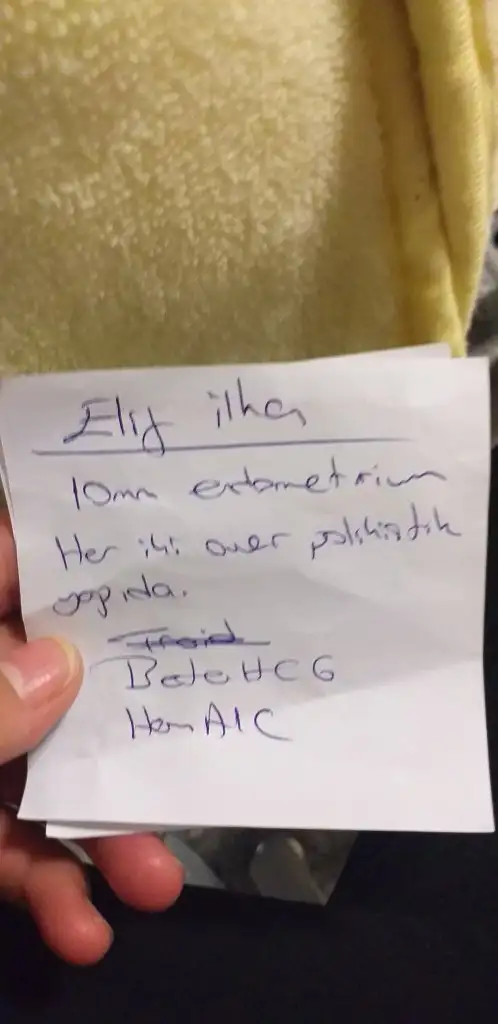 Elif ilhan
10mm endometrium
Her iki over polikistik
yapıda.
Beta HCG
Hem A1C